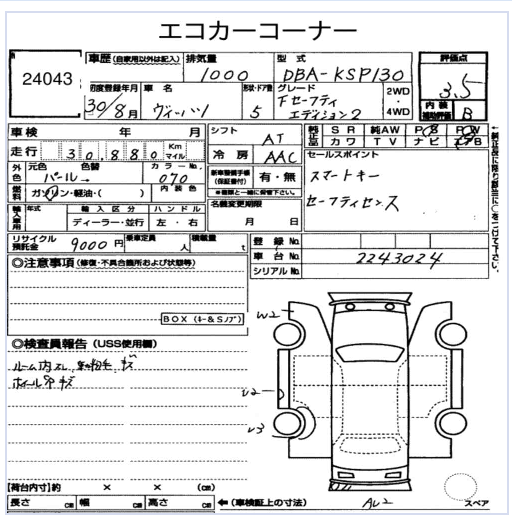 エコカーコーナー
24043
車歴 (自家用以外は記入)
排気量
1000
型式
DBA-KSP130
評価点
3.5
初度登録年月
30/8月
車名
ヴィッツ
形状・ドア数
5
グレード
F セーフティ
エディション2
2WD
・
4WD
内装
補助評価
B
車検 年 月
シフト
AT
純正品
SR 純AW PS PW
カワ TV ナビ エアB
走行 30,880 Km マイル
冷房
AAC
セールスポイント
スマートキー
セーフティセンス
外色
元色 色替
パール→
カラーNo.
070
新車整備手帳
(保証書付)
有・無
※書類と一緒に保管下さい。
燃料
ガソリン・軽油・( )
内装色
輸入車用
年式
輸入区分
ディーラー・並行
ハンドル
左・右
名義変更期限
月 日
リサイクル預託金
9000円
乗車定員
人
積載量
t
登録No.
車台No.
2243024
シリアルNo.
◎注意事項 (修復・不具合箇所および状態等)
BOX (キー&Sノブ)
◎検査員報告 (USS使用欄)
ルーム内スレ
キズ
ホイール キズ
W2
U2
AL2
スペア
【荷台内寸】約 × × (cm)
長さ cm 幅 cm 高さ cm
←(車検証上の寸法)